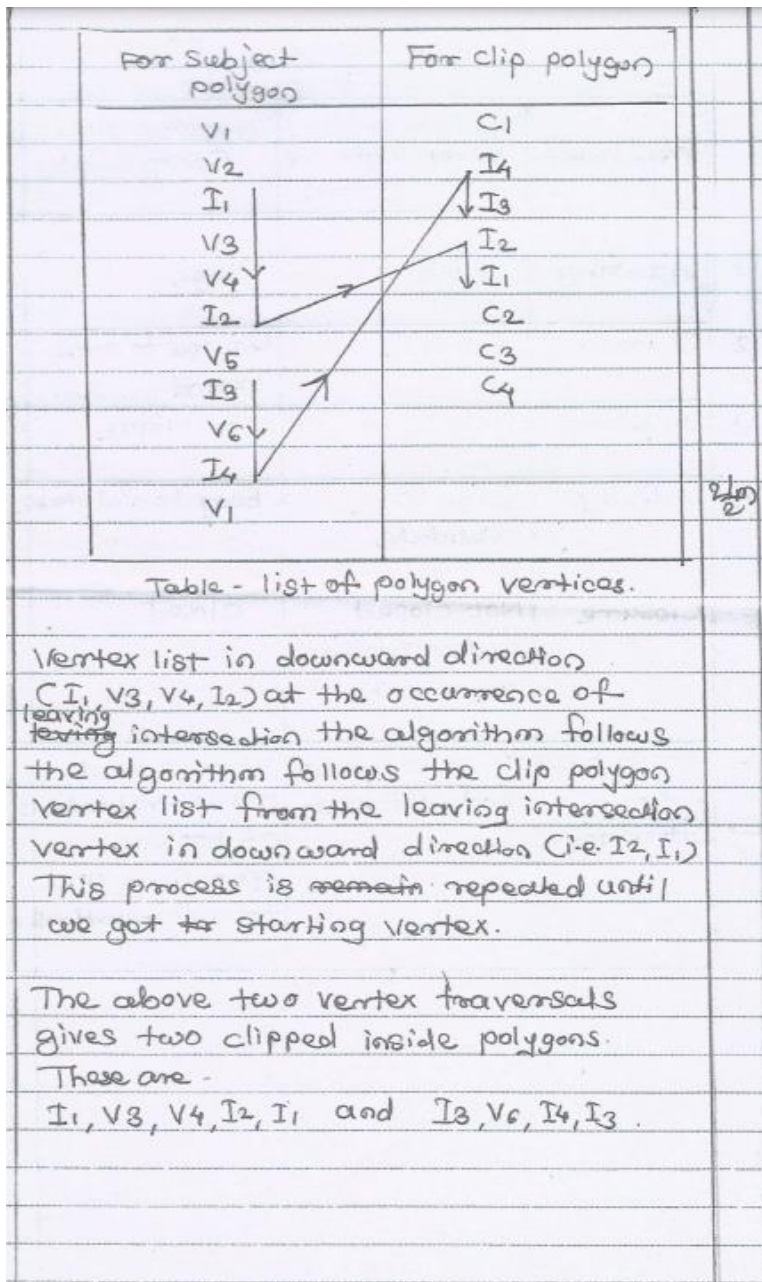 For Subject polygon For clip polygon
V1 C1
V2 I4
I1 I3
V3 I2
V4 I1
I2 C2
V5 C3
I3 C4
V6
I4
V1
Table - list of polygon vertices.
Vertex list in downward direction
(I1, V3, V4, I2) at the occurrence of
leaving
leving intersection the algorithm follows
the algorithm follows the clip polygon
vertex list from the leaving intersection
vertex in downward direction (i.e. I2, I1)
This process is remain repeated until
we get to starting vertex.
The above two vertex traversals
gives two clipped inside polygons.
These are -
I1, V3, V4, I2, I1 and I3, V6, I4, I3.